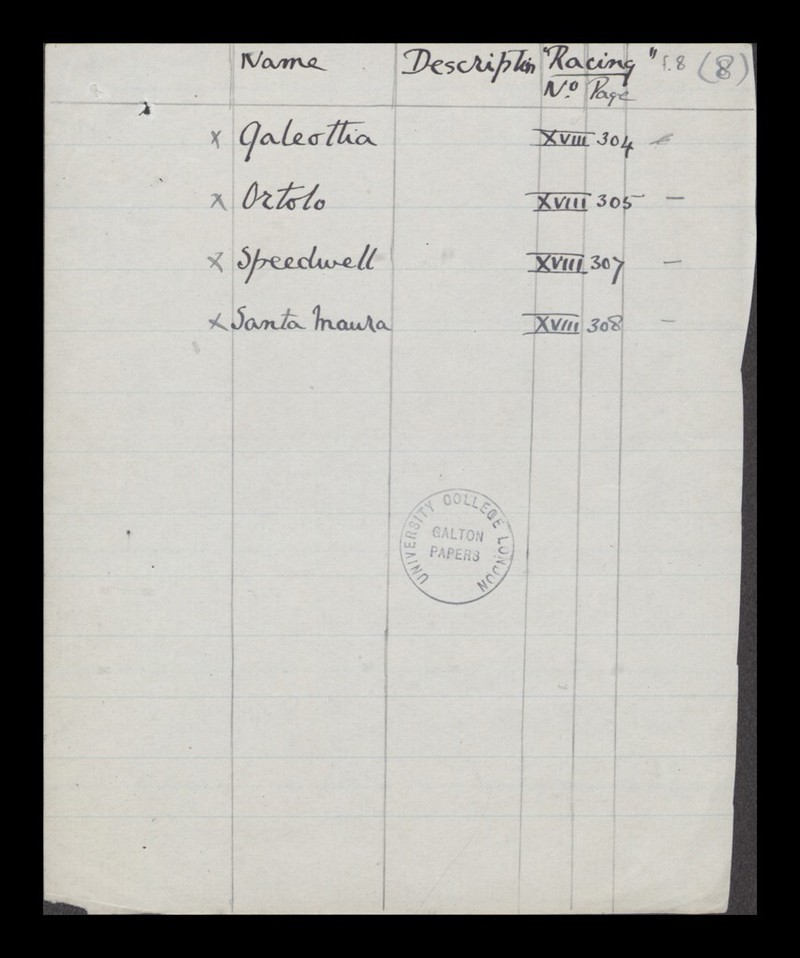 Name Description "Racing" f.8 (8)
No. Page
x Galeottia XVIII 304
x Ortolo XVIII 305 —
x Speedwell XVIII 307 —
x Santa Maura XVIII 308 —
UNIVERSITY COLLEGE LONDON
GALTON
PAPERS